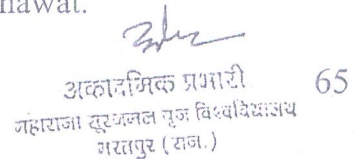 nawat.
अकादमिक प्रभारी 65
महाराजा सूरजमल बृज विश्वविद्यालय
भरतपुर (राज.)